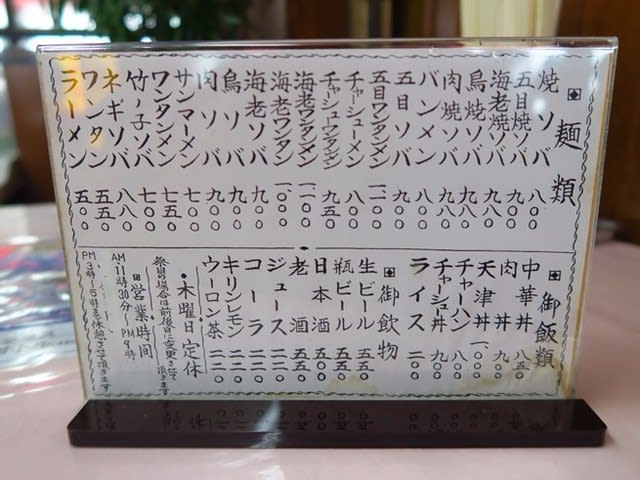 麺類
焼ソバ 八〇〇
五目焼ソバ 九〇〇
海老焼ソバ 九八〇
烏焼ソバ 九八〇
肉焼ソバ 九八〇
バンメン 八〇〇
五目ソバ 九〇〇
五目ワンタンメン 一一〇〇
チャーシューメン 八〇〇
チャーシュウワンタンメン 九五〇
海老ワンタンメン 一一〇〇
海老ワンタン 一〇〇〇
海老ソバ 九〇〇
烏ソバ 九〇〇
肉ソバ 九〇〇
サンマーメン 七〇〇
ワンタンメン 七五〇
竹ノ子ソバ 七〇〇
ネギソバ 八八〇
ワンタン 五五〇
ラーメン 五〇〇
御飯類
中華丼 八五〇
肉丼 九〇〇
天津丼 一〇〇〇
チャーハン 八〇〇
チャーシュ丼 九〇〇
ライス 二〇〇
御飲物
生ビール 五五〇
瓶ビール 五五〇
日本酒 五五〇
老酒 五五〇
ジュース 二二〇
コーラ 二二〇
キリンレモン 二二〇
ウーロン茶 二二〇
・木曜日定休
祭日の場合は前後日に変更させて
頂きます
営業時間
AM11時30分〜PM9時
PM3時〜5時まで休憩させて頂きます